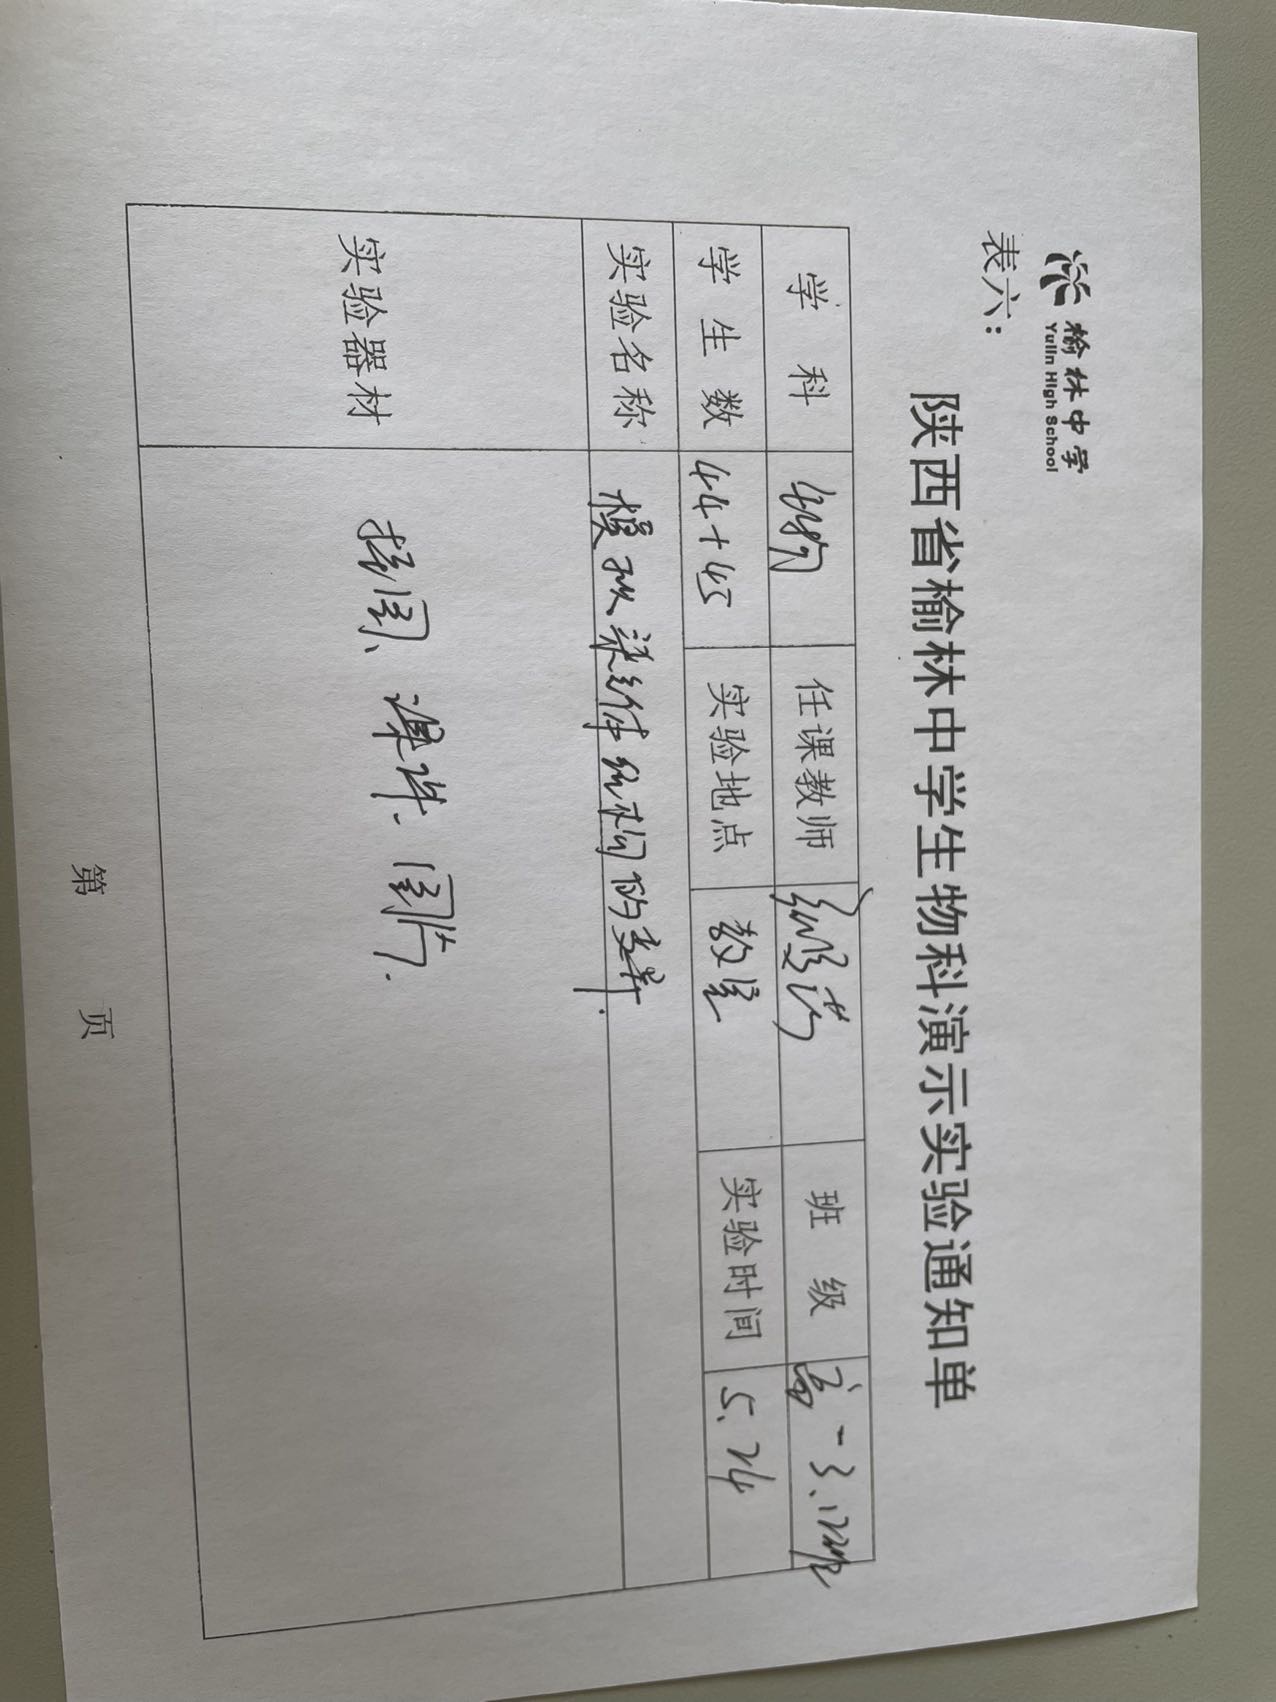 榆林中学
Yulin High School
表六：
陕西省榆林中学生物科演示实验通知单
学科 生物 任课教师 班级 高一3.12班
学生数 44+45 实验地点 教室 实验时间 5.24
实验名称 模拟染色体结构的变异.
实验器材 挂图、课件、图片.
第 页